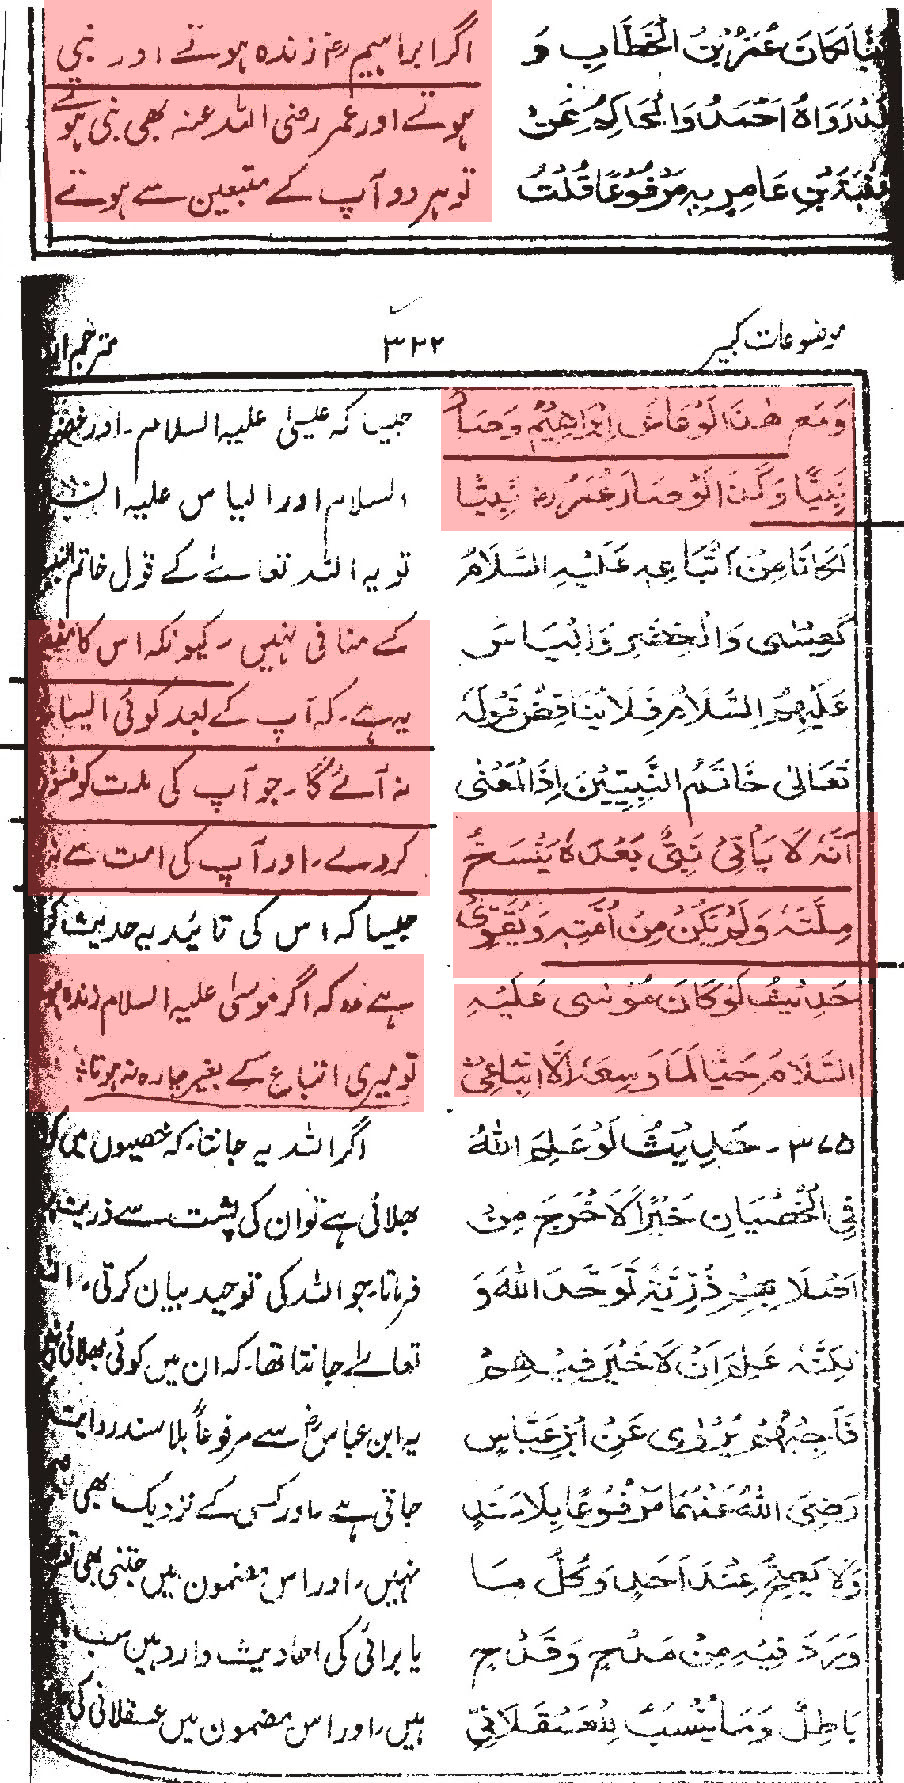 نَبِيًّا لَكَانَ عُمَرُ بْنُ الْخَطَّابِ وَ
قَدْ رَوَاهُ اَحْمَدُ وَالْحَاكِمُ عَنْ
عُقْبَةَ بْنِ عَامِرٍ بِهٖ مَرْفُوْعًا قُلْتُ
اگر ابراہیم رض زندہ ہوتے اور نبی
ہوتے اور عمر رضی اللہ عنہ بھی نبی ہوتے
تو ہر دو آپ کے متبعین سے ہوتے
موضوعات کبیر
۳۲۲
مترجم
وَمَعَ هٰذَا لَوْعَاشَ اِبْرَاهِيْمُ وَصَارَ
نَبِيًّا وَكَذَا لَوْصَارَ عُمَرُ رض نَبِيًّا
لَكَانَا مِنْ اَتْبَاعِهٖ عَلَيْهِ السَّلَامُ
كَعِيْسٰى وَالْخِضْرِ وَاِلْيَاسَ
عَلَيْهِمُ السَّلَامُ فَلَا يُنَاقِضُ قَوْلَهٗ
تَعَالٰى خَاتَمُ النَّبِيِّيْنَ اِذَا الْمَعْنٰى
اَنَّهٗ لَا يَأْتِيْ نَبِيٌّ بَعْدَهٗ يَنْسَخُ
مِلَّتَهٗ وَلَمْ يَكُنْ مِنْ اُمَّتِهٖ وَيُقَوِّيْ
حَدِيْثُ لَوْ كَانَ مُوْسٰى عَلَيْهِ
السَّلَامُ حَيًّا لَمَا وَسِعَهٗ اِلَّا اتِّبَاعِيْ
۳۷۵ - حَدِيْثُ لَوْ عَلِمَ اللّٰهُ
فِي الْخَصْيَانِ خَيْرًا لَاَخْرَجَ مِنْ
اَصْلَابِهِمْ ذُرِّيَّةً تُوَحِّدُ اللّٰهَ وَ
لٰكِنَّهٗ عَلِمَ اَنْ لَا خَيْرَ فِيْهِمْ
فَاَجَبَّهُمْ يُرْوٰى عَنِ ابْنِ عَبَّاسٍ
رَضِيَ اللّٰهُ عَنْهُمَا مَرْفُوْعًا بِلَا سَنَدٍ
وَلَا يَصِحُّ عِنْدَ اَحَدٍ وَكُلُّ مَا
وَرَدَ فِيْهِ مِنْ مَدْحٍ وَقَدْحٍ
بَاطِلٌ وَمَا يُنْسَبُ لِلْعَسْقَلَانِيِّ
جیسا کہ عیسیٰ علیہ السلام۔ اور خضر
السلام اور الیاس علیہ
تو یہ اللہ تعالےٰ کے قول خاتم النبیین
کے منافی نہیں۔ کیونکہ اس کا
یہ ہے۔ کہ آپ کے بعد کوئی ایسا
نہ آئے گا۔ جو آپ کی ملت کو منسوخ
کر دے۔ اور آپ کی امت سے نہ
جیسا کہ اس کی تائید یہ حدیث
ہے کہ اگر موسیٰ علیہ السلام زندہ
تو میری اتباع کے بغیر چارہ نہ ہوتا
اگر اللہ یہ جانتا۔ کہ خصیوں میں
بھلائی ہے تو ان کی پشت سے ذریت
فرماتا۔ جو اللہ کی توحید بیان کرتی۔
تعالےٰ جانتا تھا۔ کہ ان میں کوئی بھلائی
یہ ابن عباس رض سے مرفوعاً بلا سند روایت
جاتی ہے۔ اور کسی کے نزدیک بھی
نہیں، اور اس مضمون میں جتنی بھی
یا برائی کی احادیث وارد ہیں سب
ہیں، اور اس مضمون میں عسقلانی کی